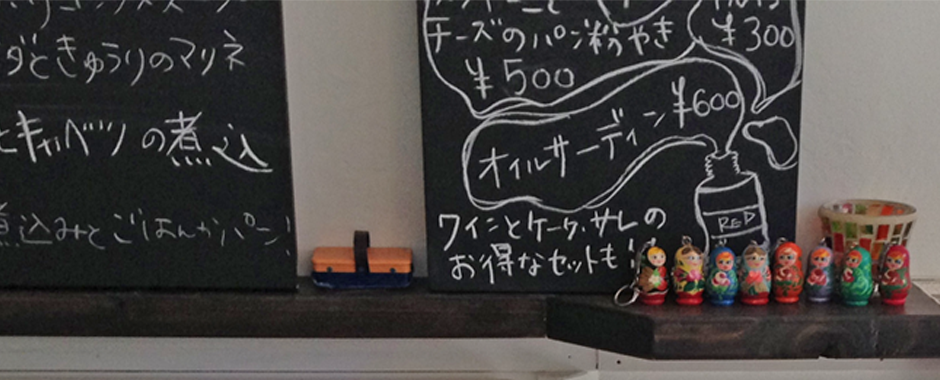 ダときゅうりのマリネ
とキャベツの煮込
煮込みとごはんかパン!
チーズのパン粉やき
¥500
¥300
オイルサーディン ¥600
RED
ワインとケーク・サレの
お得なセットも!